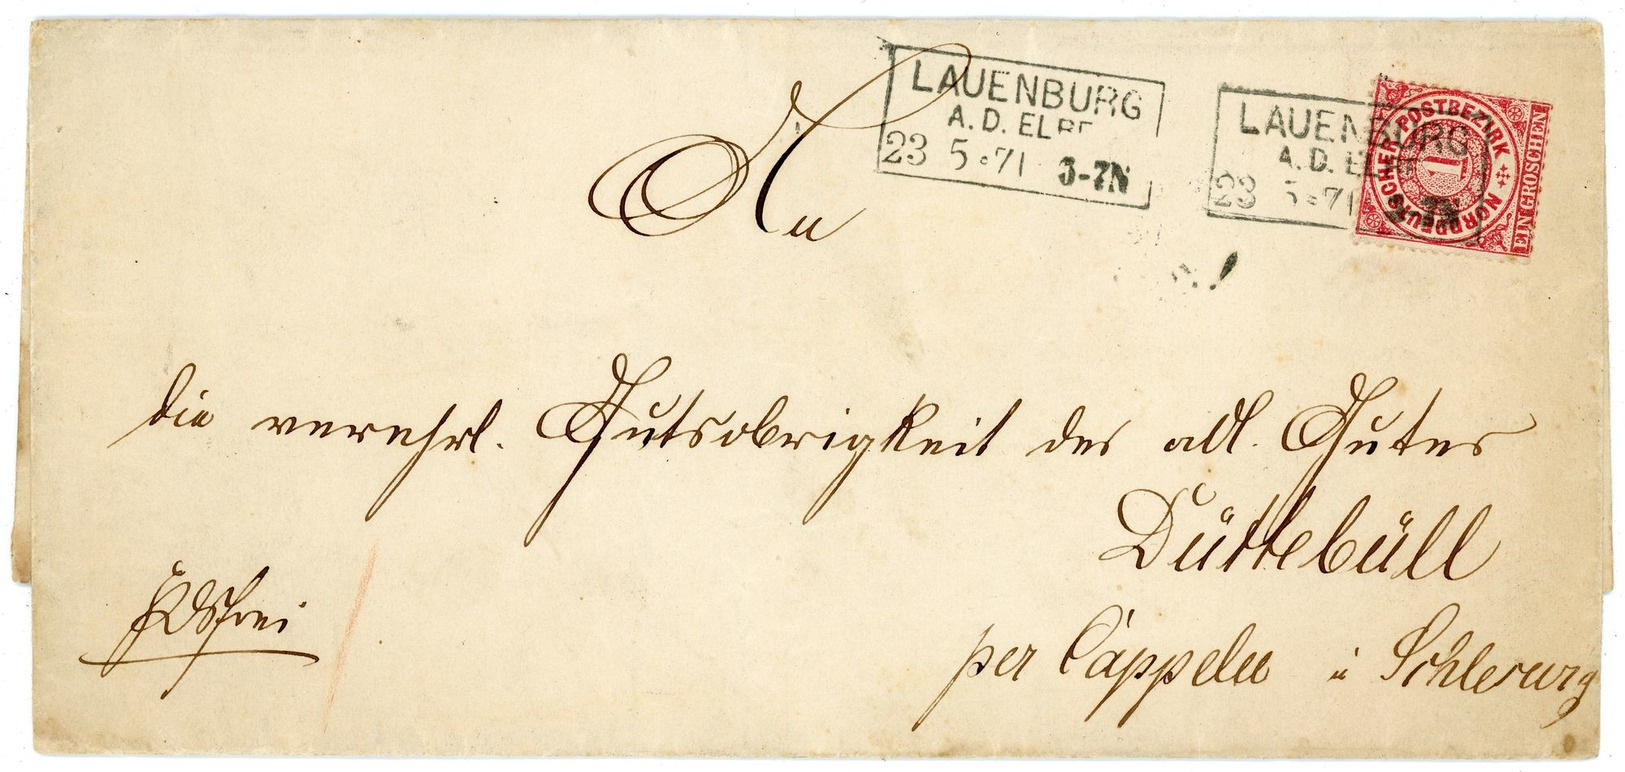 LAUENBURG
A.D. ELBE
23 5 71 5-7N
LAUENBURG
A.D. ELBE
23 5 71 7N
NORDDEUTSCHER POSTBEZIRK
1
EIN GROSCHEN
An
die verehrl. Gutsobrigkeit des adl. Gutes
Düttebüll
per Cappeln i Schleswig